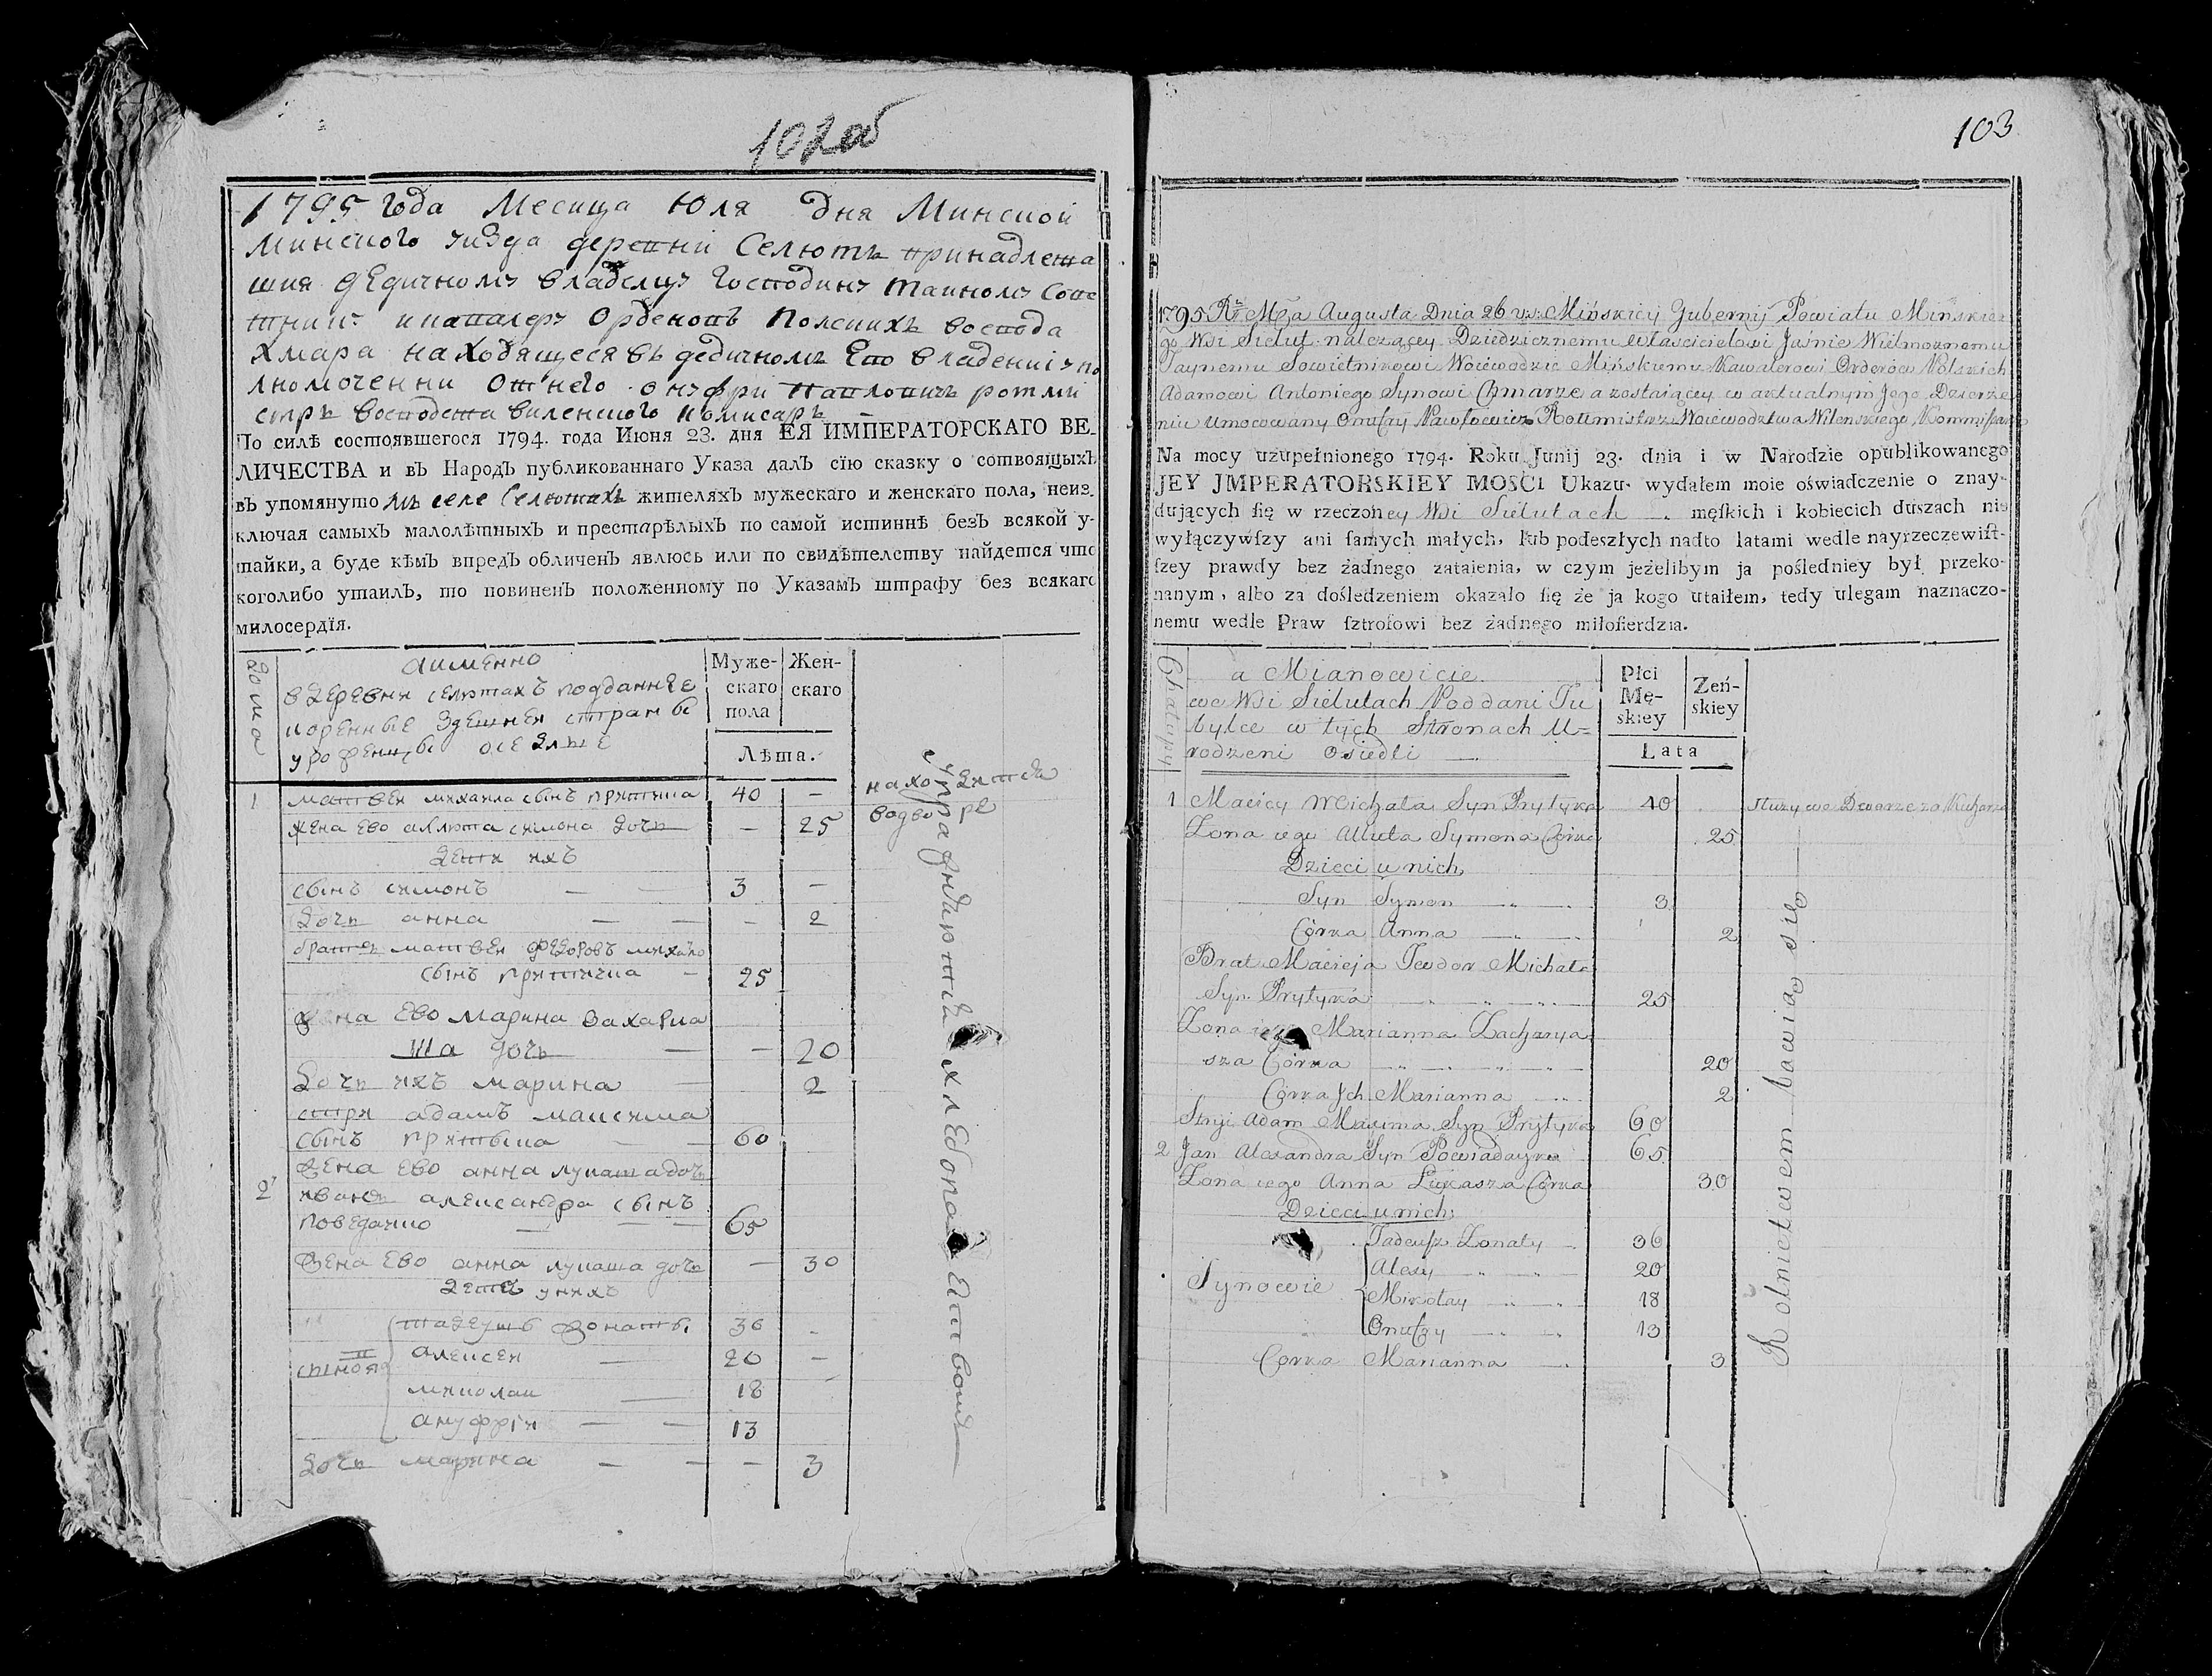 102об
1795 года Месица Юля дня Минской
Минского уизда деревни Селютъ принадлежа
шия дедичному владелцу Господину таиному Сове
тнику и кавалеру Орденовъ Полскихъ воевода
Хмара находящеся въ дедичномъ Его владении упо
лномоченни от него онуфри Павловичъ ротми
стръ воеводства виленского комисаръ
По силѣ состоявшегося 1794. года Июня 23. дня ЕЯ ИМПЕРАТОРСКАГО ВЕ-
ЛИЧЕСТВА и въ Народъ публикованнаго Указа далъ сїю сказку о сотвоящыхъ
въ упомянуто мъ селе Селютахъ жителяхъ мужескаго и женскаго пола, неиз-
ключая самыхъ малолѣтныхъ и престарѣлыхъ по самой истиннѣ безъ всякой у-
тайки, а буде кѣмъ впредъ обличенъ явлюсь или по свидѣтелству найдется что
коголибо утаилъ, то повиненъ положенному по Указамъ штрафу без всякаго
милосердїя.
Дома
аименно
в деревни селютахъ подданние
коренные здешней страны
урожденцы оседлые
Муже-
скаго
пола
Жен-
скаго
Лѣта.
1 матвей михаила сынъ притика 40 —
находится
водворе
жена ево алюта симона дочь — 25
дети ихъ
сынъ симонъ — — 3 —
дочь анна — — — 2
братъ матвея федоръ михаило
сынъ притика — 25
жена ево марина захариа
ша дочь — — 20
дочь ихъ марина — 2
стри адамъ максима
сынъ притыка — — 60
жена ево анна лукаша дочь
2 иванъ александра сынъ
поведайко — — — 65
жена ево анна лукаша дочь — 30
дети у нихъ
сынове
тадеушъ жонаты 36 —
алексей — 20 —
миколаи — 18
ануфрiи — — 13
дочь марина — — — 3
упражндаются хлебопашествомъ
103
1795 Rū Mca Augusta Dnia 26 v.s. Mińskiey Gubernij Powiatu Minskie
go Wsi Sielut należącey Dziedzicznemu właścicielowi Jaśnie Wielmożnemu
Taynemu Sowietnikowi Woiewodzie Mińskiemu Kawalerowi Orderow Polskich
Adamowi Antoniego Synowi Chmarze a zostaiącey w aktualnym Jego Dzierże
niu Umocowany Onufry Pawłowicz Rotmistrz Woiewodztwa Wilenskiego Kommissarz
Na mocy uzupełnionego 1794. Roku Junij 23. dnia i w Narodzie opublikowanego
JEY JMPERATORSKIEY MOSCI Ukazu. wydałem moie oświadczenie o znay-
dujących ſię w rzeczoney Wsi Sielutach męſkich i kobiecich duszach nie
wyłączywſzy ani ſamych małych, lub podeszłych nadto latami wedle nayrzeczewiſt-
ſzey prawdy bez żadnego zataienia, w czym jeżelibym ja poſledniey był przeko-
nanym, albo za dośledzeniem okazało ſię że ja kogo utaiłem, tedy ulegam naznaczo-
nemu wedle Praw ſztrofowi bez żadnego miłoſierdzia.
Chałupy
a Mianowicie
we Wsi Sielutach Poddani Tu
bylce w tych Stronach U=
rodzeni Osiedli —
Płci
Mę-
skiey
Zeń-
skiey
Lata
1 Maciey Michała Syn Prytyka 40 służy we Dworze za Kucharza
Zona iego Alluta Symona Corka 25
Dzieci u nich
Syn Symon 3
Córka Anna 2
Brat Macieja Teodor Michała
Syn Prytyka 25
Zona iego Marianna Zacharya
sza Córka 20
Córka Jch Marianna 2
Stryi Adam Maxima Syn Prytyka 60
2 Jan Alexandra Syn Powiadayko 65
Zona iego Anna Łukasza Córka 30
Dzieci u nich
Synowie
Tadeusz Zonaty 36
Alexy 20
Mikołay 18
Onufry 13
Corka Marianna 3
Rolnictwem bawią się